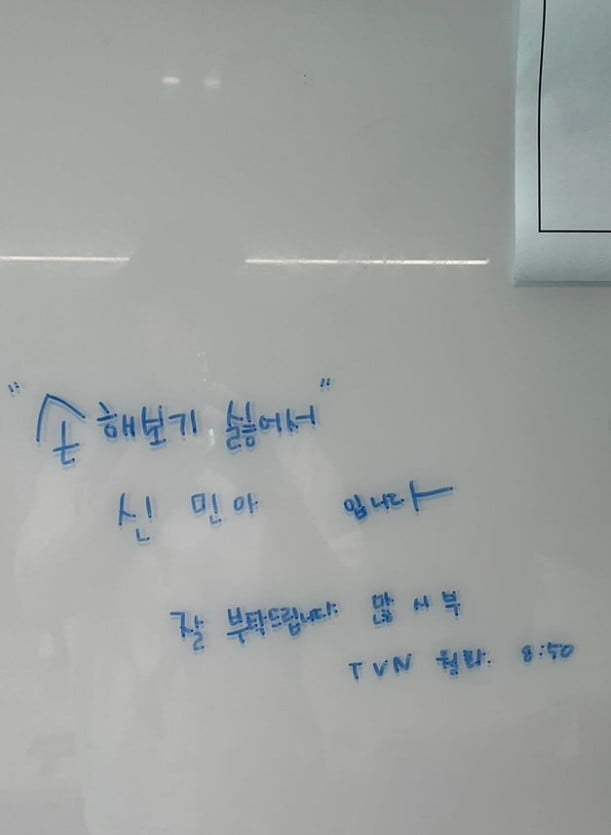 "손해보기 싫어서"
신 민 아 입니다
잘 부탁드립니다. 많 시 부
TVN 월화. 8:50